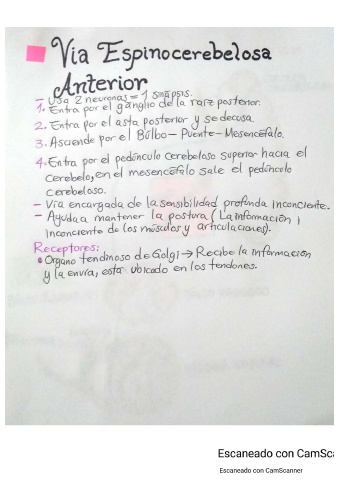 Via Espinocerebelosa
Anterior
- Usa 2 neuronas = 1 sinapsis.
1. Entra por el ganglio de la raíz posterior.
2. Entra por el asta posterior y se decusa.
3. Asciende por el Bulbo - Puente - Mesencéfalo.
4. Entra por el pedúnculo cerebeloso superior hacia el
cerebelo, en el mesencéfalo sale el pedúnculo
cerebeloso.
- Vía encargada de la sensibilidad profunda inconciente.
- Ayuda a mantener la postura (La información
inconciente de los músculos y articulaciones).
Receptores:
• Organo tendinoso de Golgi → Recibe la información
y la envía, esta ubicado en los tendones.
Escaneado con CamSca
Escaneado con CamScanner